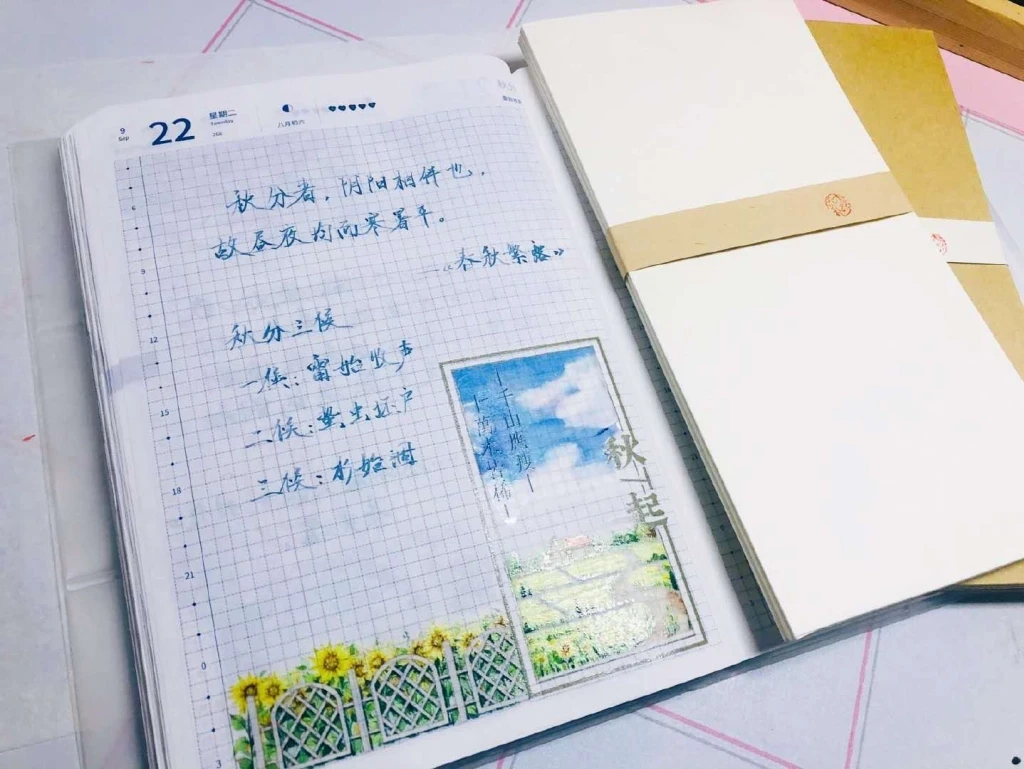 9
Sep
22
星期二
Tuesday
266
八月初六
秋分
6
9
12
15
18
21
0
3
秋分者，阴阳相伴也，
故昼夜均而寒暑平。
—《春秋繁露》
秋分三候
一候：雷始收声
二候：蛰虫坯户
三候：水始涸
千山
秋起